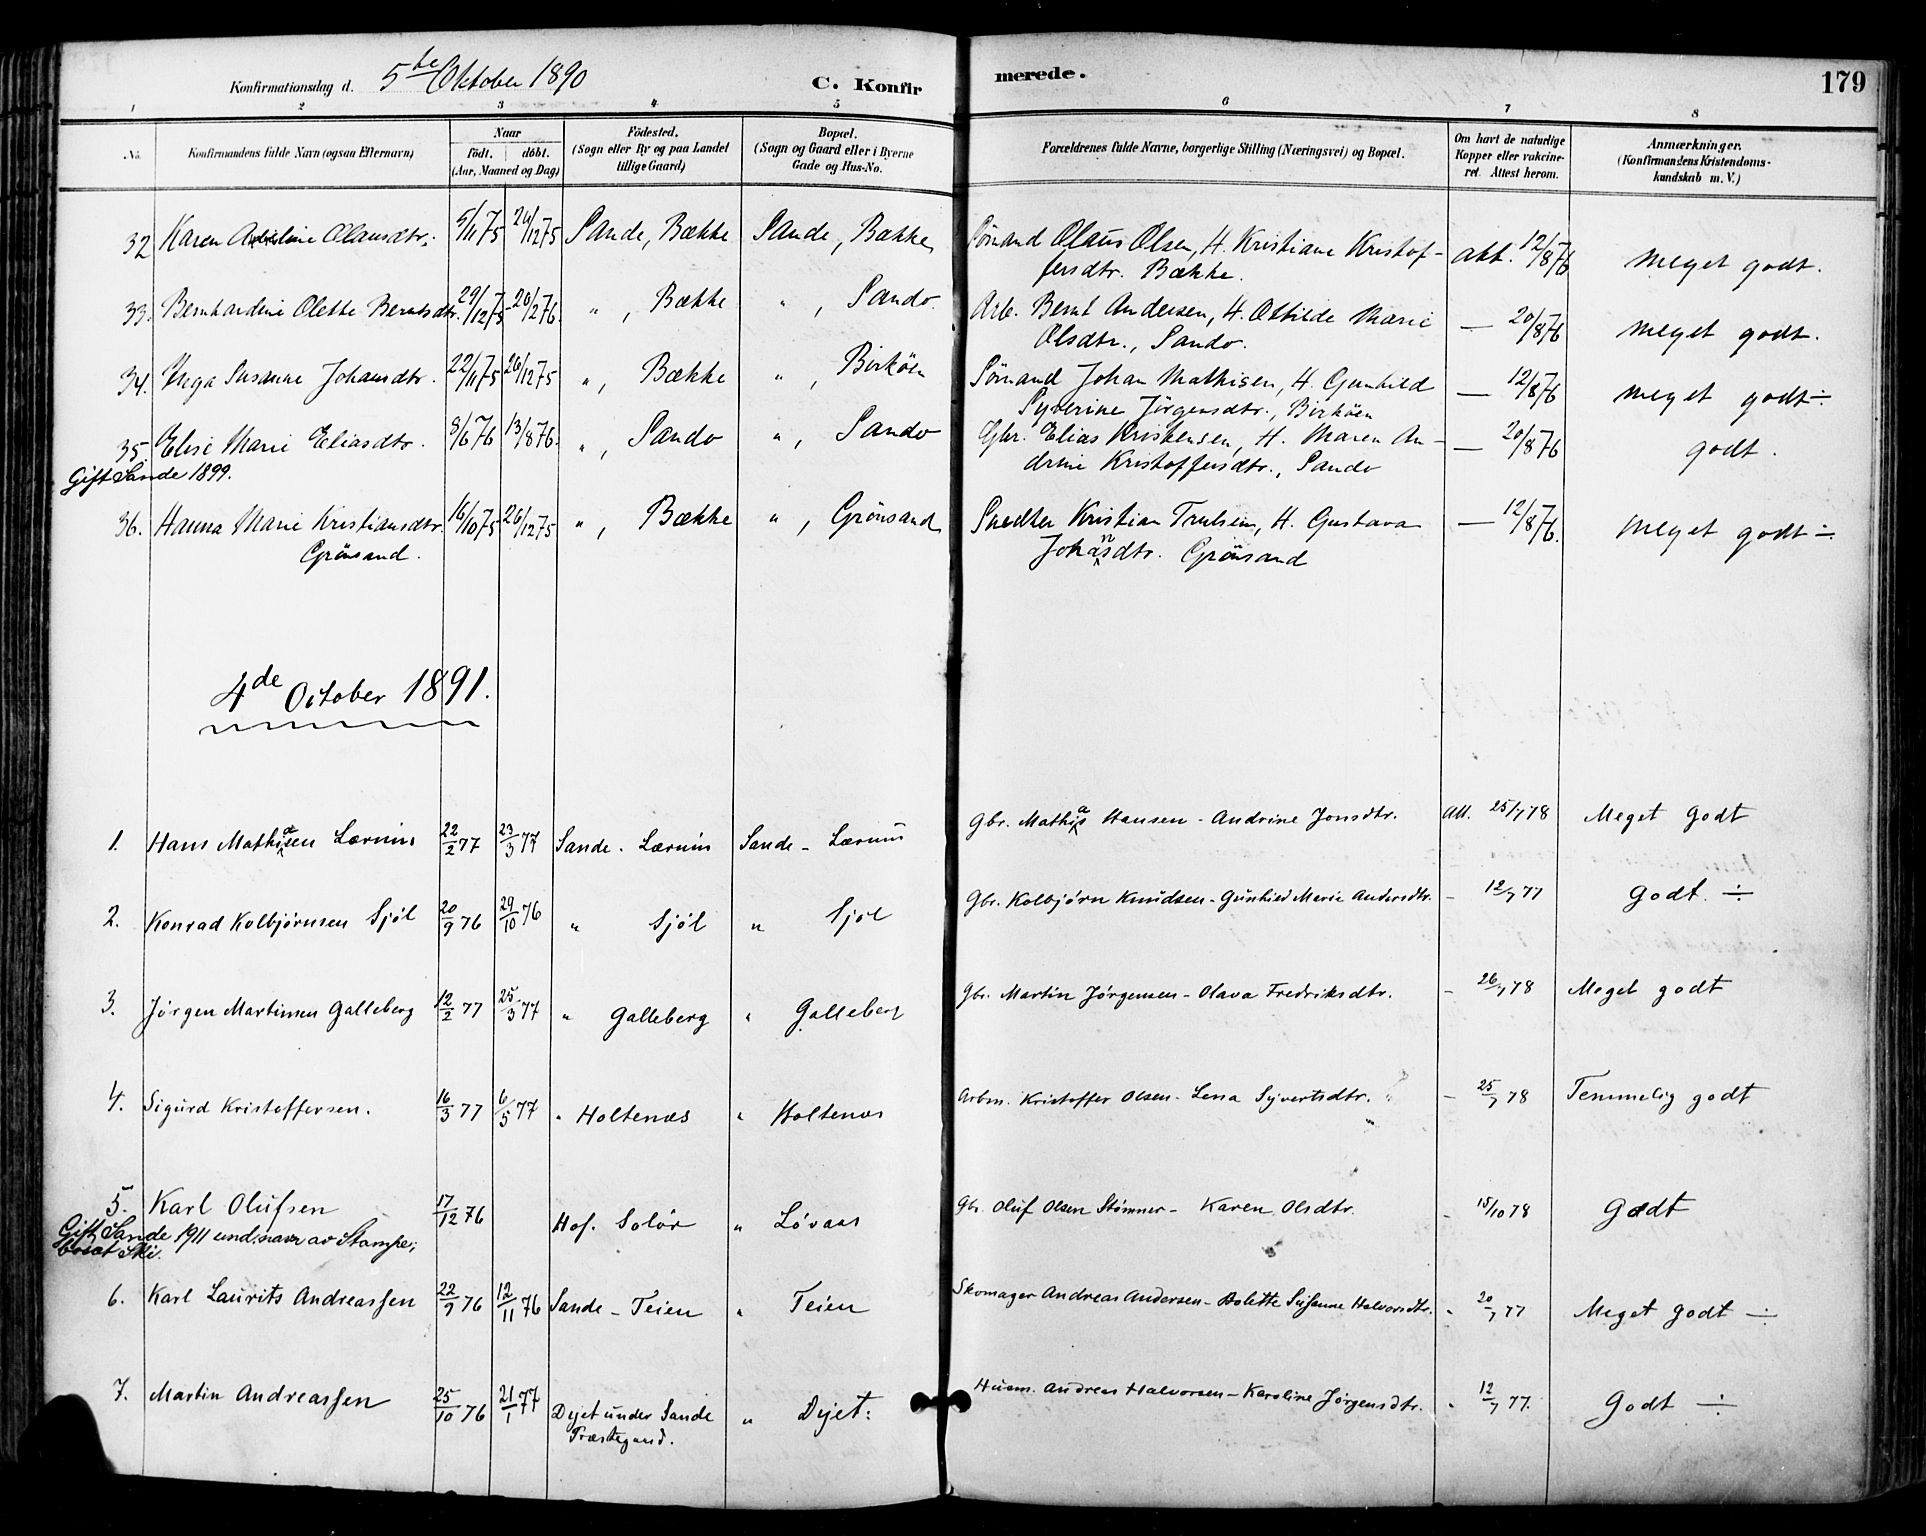 Konfirmationsdag d. 5te Oktober 1890 C. Konfirmerede. 179
1 2 3 4 5 6 7 8
No. Konfirmandens fulde Navn (ogsaa Efternavn) Naar födt. döbt. (Aar, Maaned og Dag) Födested. (Sogn eller By og paa Landet tillige Gaard) Bopæl. (Sogn og Gaard eller i Byerne Gade og Hus-No. Forældrenes fulde Navne, borgerlige Stilling (Næringsvei) og Bopæl. Om havt de naturlige Kopper eller vakcineret. Attest herom. Anmærkninger. (Konfirmandens Kristendomskundskab m. V.)
32 Karen Olausdtr. 5/11 75 26/12 75 Sande, Bække Sande, Bække Sömand Olaus Olsen, H. Kristiane Kristof-
fersdtr. Bække. att. 12/8 76 meget godt.
33. Bernhardine Olette Berntsdtr. 29/12 75 20/2 76. " , Bække " , Sando Arb. Bernt Andersen, H. Ottilde Marie
Olsdtr., Sando. — 20/8 76 meget godt.
34. Inga Susanne Johansdtr. 22/11 75 26/12 75 " , Bække " , Birköen Sömand Johan Mathisen, H. Gunhild
Syverine Jörgensdtr., Birköen — 12/8 76 meget godt ÷
35. Elise Marie Eliasdtr. 8/6 76 13/8 76. " , Sando " , Sando Gbr. Elias Kristensen, H. Maren An-
drine Kristoffersdtr., Sando — 20/8 76 godt.
Gift Sande 1899.
36. Hanna Marie Kristiansdtr. 16/10 75 26/12 75 " , Bække " , Grönsand Snedker Kristian Trulsen, H. Gustava
Grönsand. Johansdtr. Grönsand — 12/8 76. meget godt ÷
4de October 1891.
1. Hans Mathiasen Lærum 22/2 77 23/3 77 Sande - Lærum Sande - Lærum Gbr. Mathias Hansen - Andrine Jonsdtr. Att. 25/7 78 Meget godt
2. Konrad Kolbjørnsen Sjøl 20/9 76 29/10 76 " Sjøl " Sjøl Gbr. Kolbjørn Knudsen - Gunhild Marie Andersdtr. - 12/7 77 Godt ÷
3. Jørgen Martinsen Galleberg 12/2 77 25/3 77 " Galleberg " Galleberg Gbr. Martin Jørgensen - Olava Fredriksdtr. - 26/7 78 Meget godt
4. Sigurd Kristoffersen. 16/3 77 6/5 77 " Holtenæs " Holtenæs Arbm. Kristoffer Olsen - Lena Syvertsdtr. - 25/7 78 Temmelig godt
5. Karl Olufsen 17/12 76 Hof. Solør " Løvaas Gbr. Oluf Olsen Stømner - Karen Olsdtr. - 15/10 78 Godt
Gift Sande 1911 und. navn av Stampe;
bosat Ski.
6. Karl Laurits Andreassen 22/9 76 12/11 76 Sande - Teien " Teien Skomager Andreas Andersen - Bolette Susanne Halvorsdtr. - 20/7 77 Meget Godt ÷
7. Martin Andreassen 25/10 76 21/1 77 Dyet under Sande " Dyet: Husm. Andreas Halvorsen - Karoline Jørgensdtr. - 12/7 77. Godt ÷
Præstegaard.